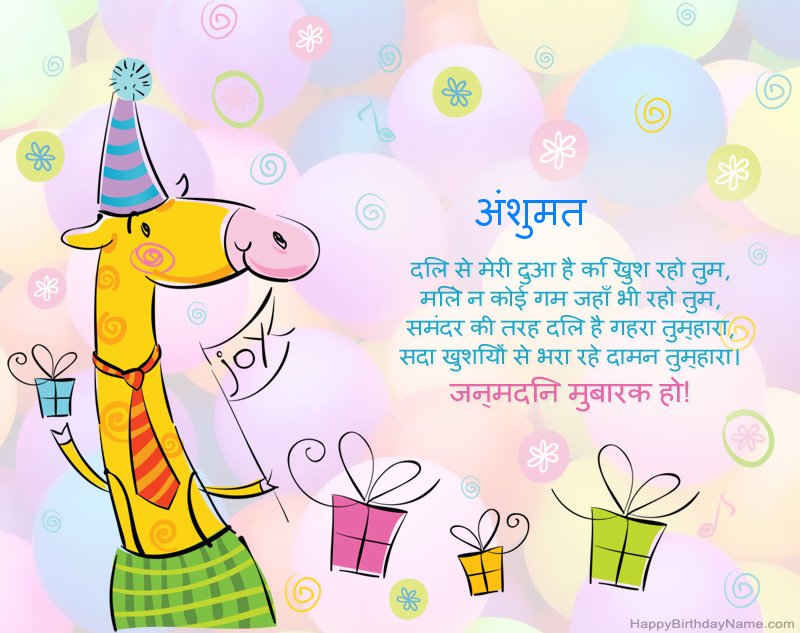 अंशुमत
दिल से मेरी दुआ है कि खुश रहो तुम,
मिले न कोई गम जहाँ भी रहो तुम,
समंदर की तरह दिल है गहरा तुम्हारा,
सदा खुशियों से भरा रहे दामन तुम्हारा।
जन्मदिन मुबारक हो!
joy
HappyBirthdayName.com